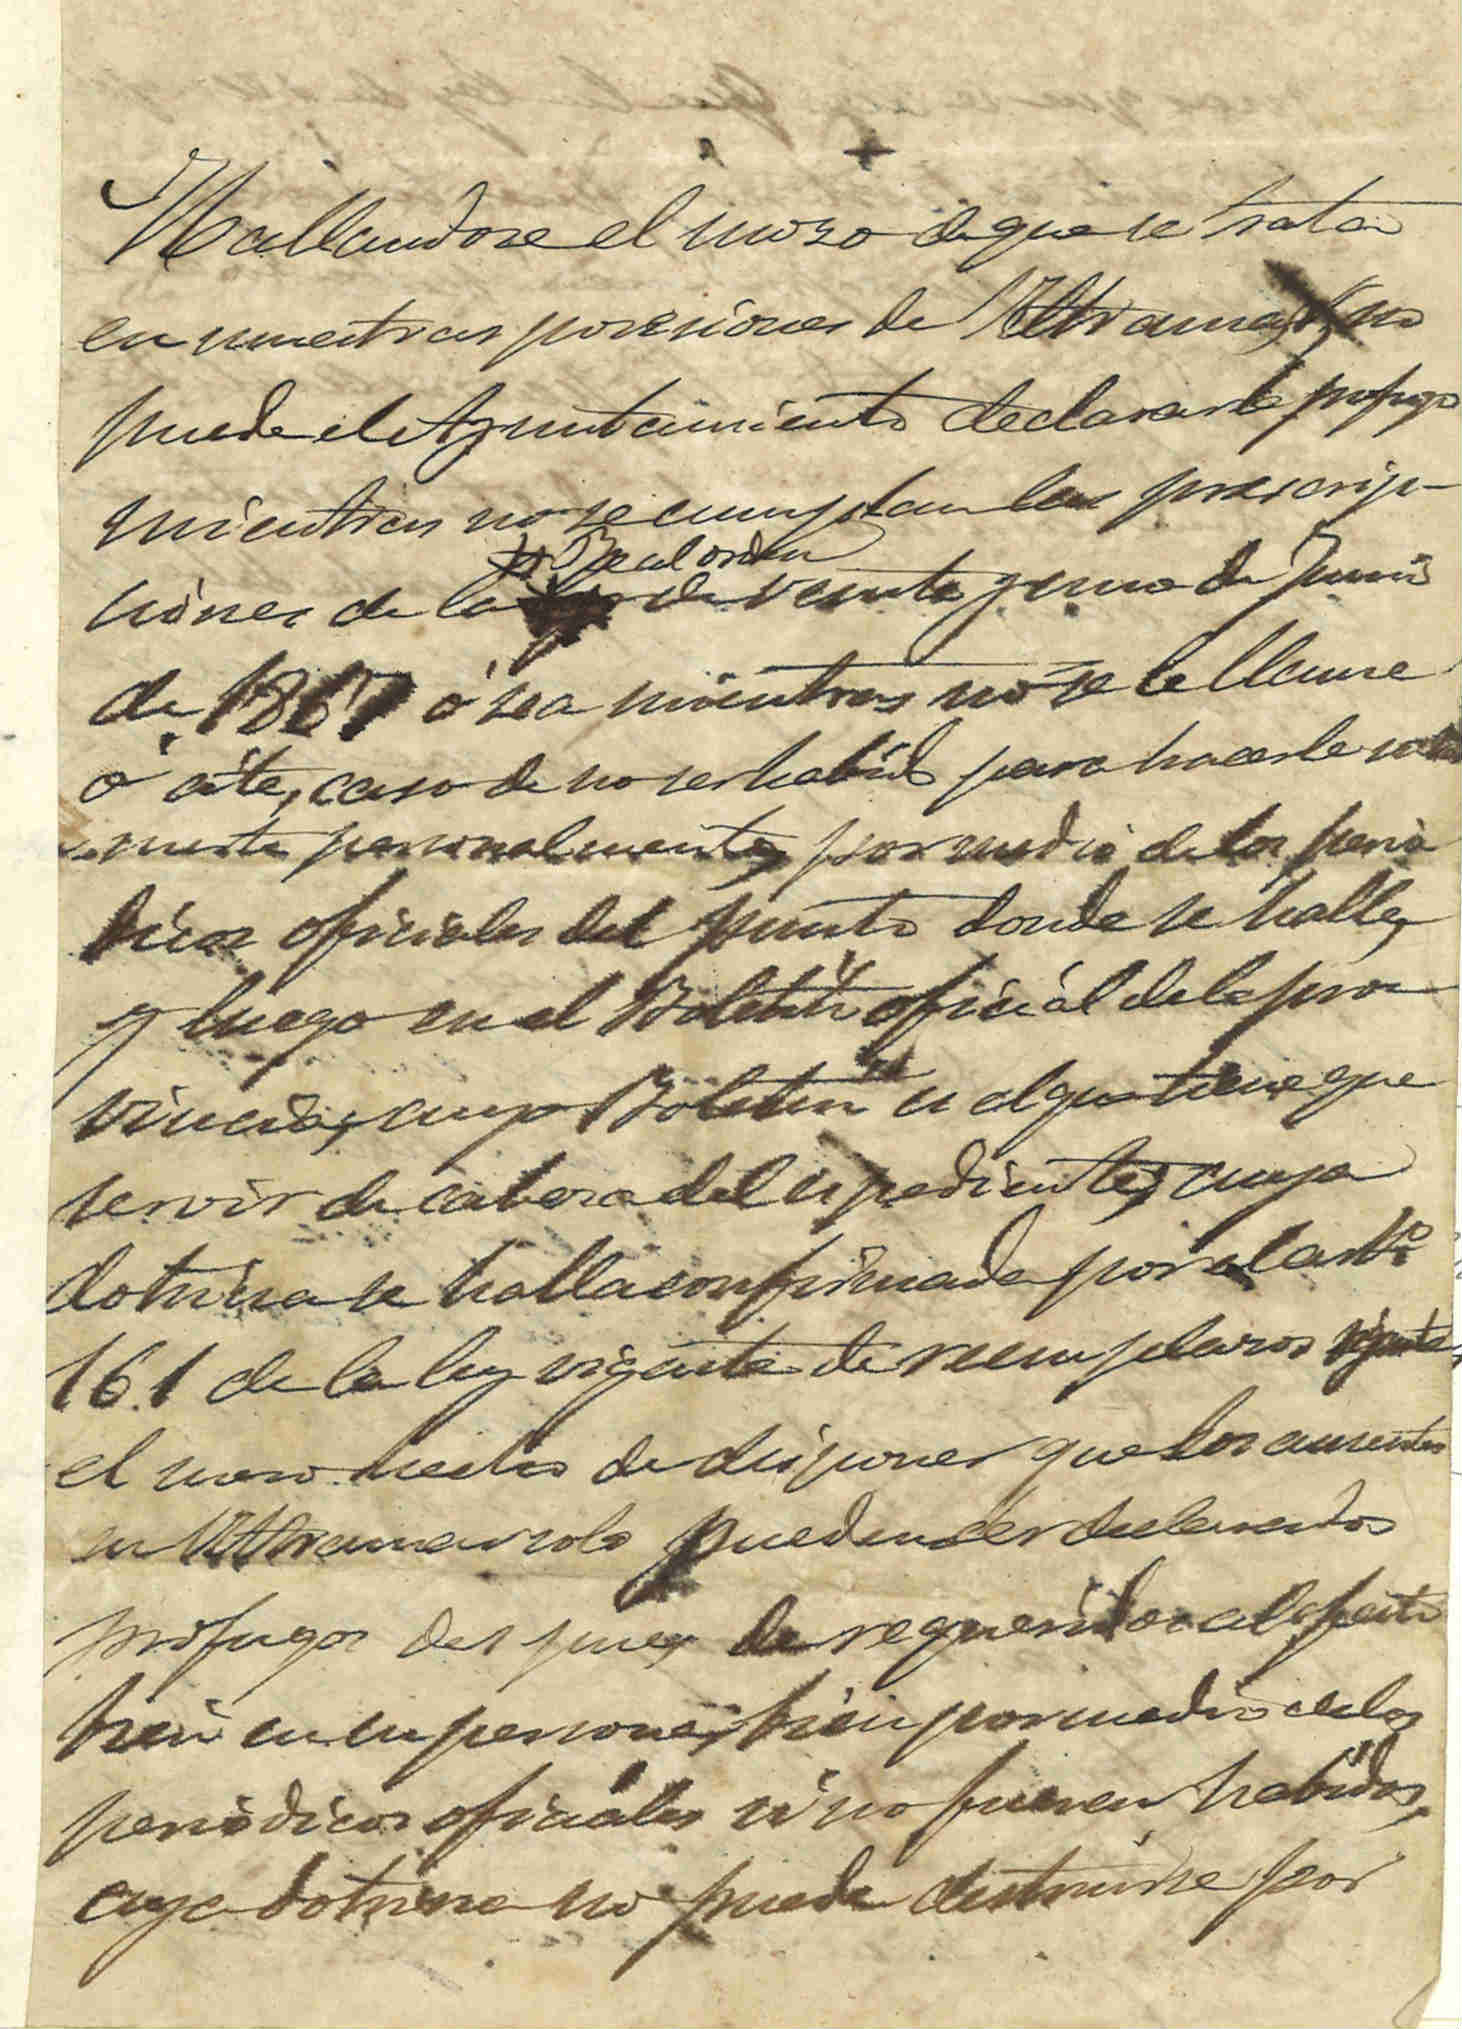 Hallandose el moso de que se trata
en nuestras posesiones de Ultramar, no
puede el Ayuntamiento declararle profugo
mientras no se cumplan las prescrip-
ciones de la Real orden de veinte y uno de Junio
de 1867 ó sea mientras no se le llame
ó cite, caso de no ser habido para hacerle
personalmente, por medio de los perió
dicos oficiales del punto donde se halle,
y luego en el Boletin oficial de la pro
vincia, cuyo Boletin es el que tiene que
servir de cabeza del espediente, cuya
dotrina se halla confirmada por el artº
161 de la ley vigente de reemplazos
el mero hecho de disponer que los ausentes
en Ultramar solo pueden ser declarados
prófugos despues de requeridos al efecto
bien en su persona, bien por medio de los
periódicos oficiales si no fuesen habidos,
cuya dotrina no puede destruirse por